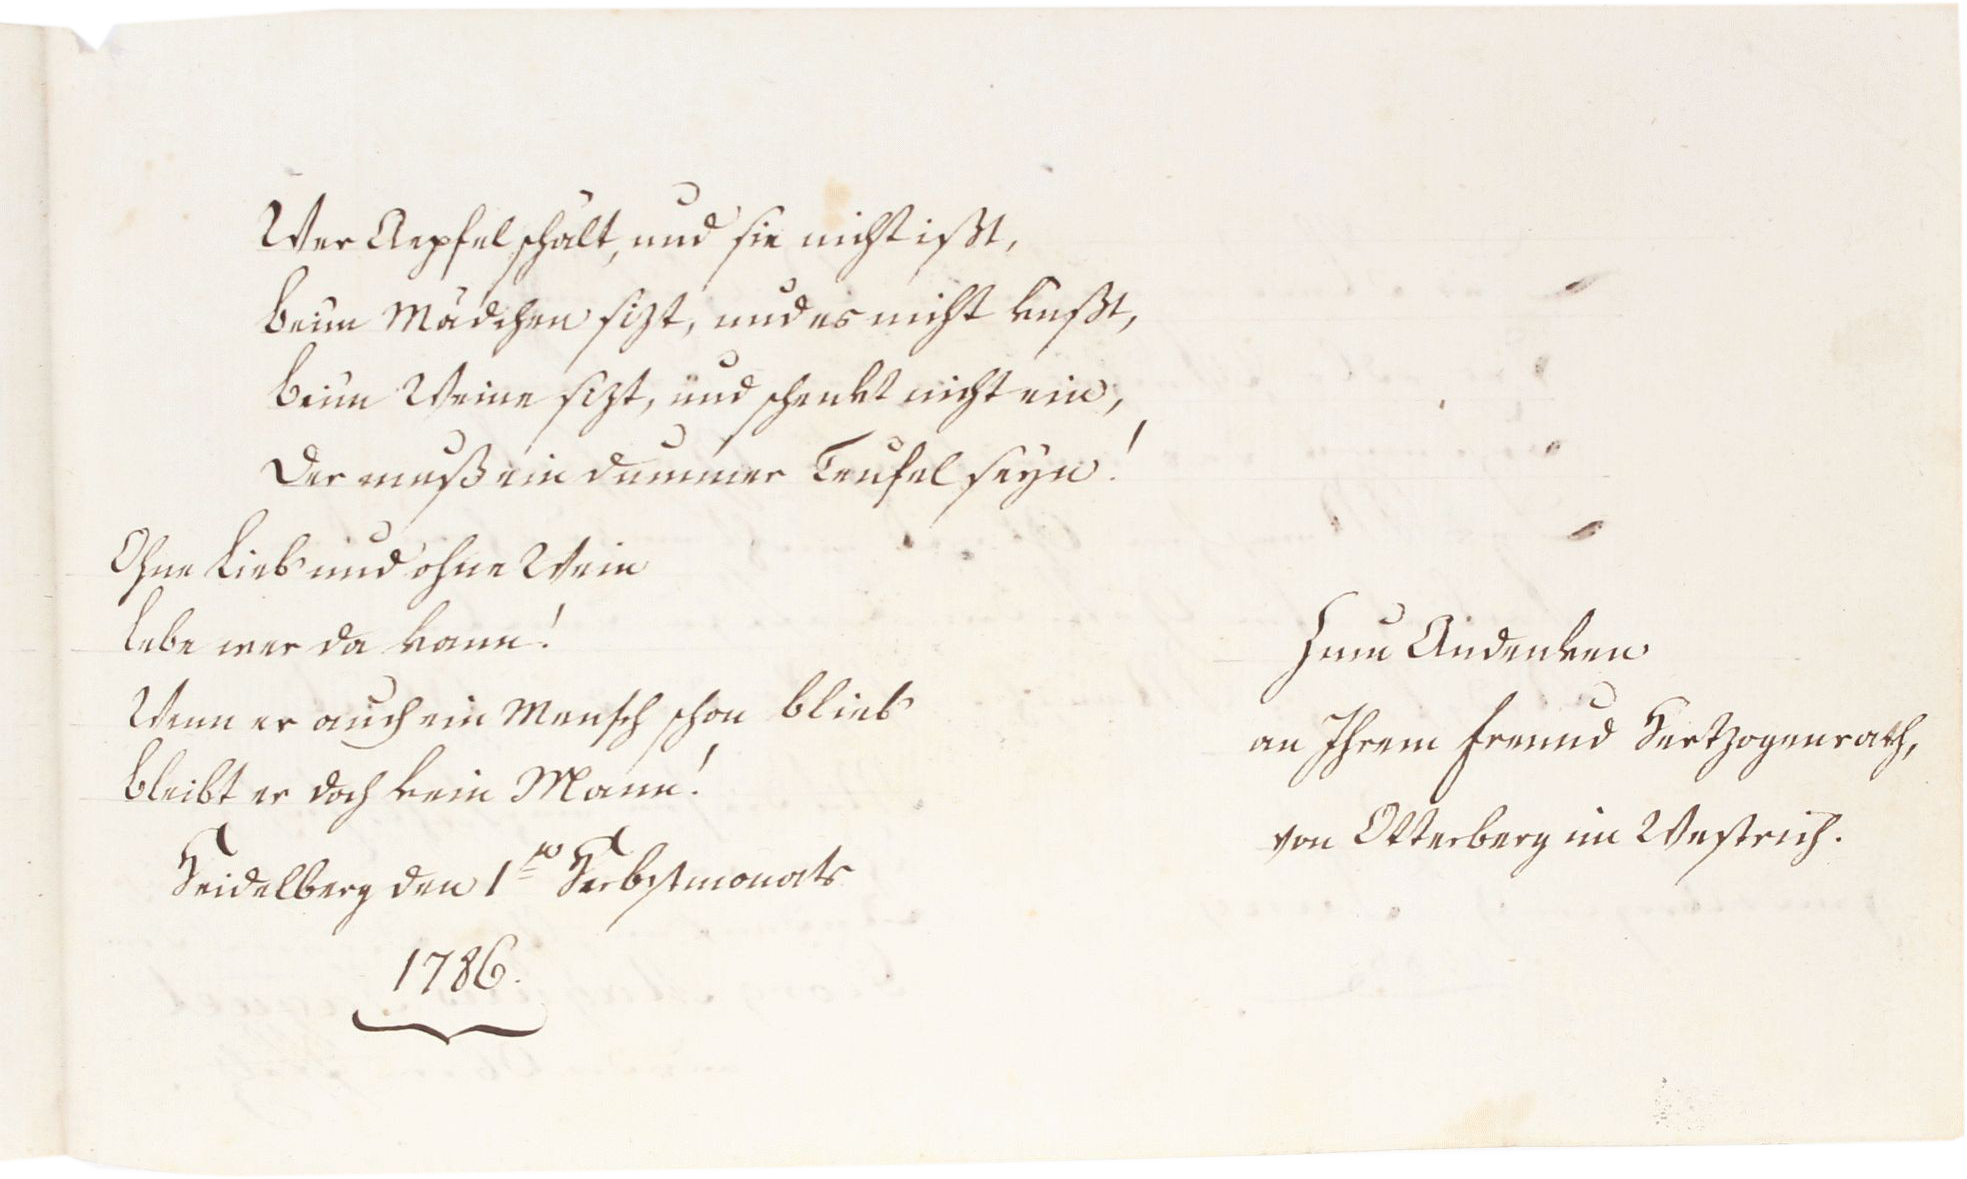 Wer Aepfel schält, und sie nicht ißt,
beim Mädchen sizt, und es nicht küßt,
beim Weine sizt, und schenkt nicht ein,
Der muß ein dummer Teufel seyn!
Ohne Lieb und ohne Wein
lebe wer da kann!
Wenn er auch ein Mensch schon blieb
bleibt er doch kein Mann!
Heidelberg den 1ten Herbstmonats
1786.
Zum Andenken
an Ihrem Freund Hertzogenrath,
von Otterberg im Westrich.